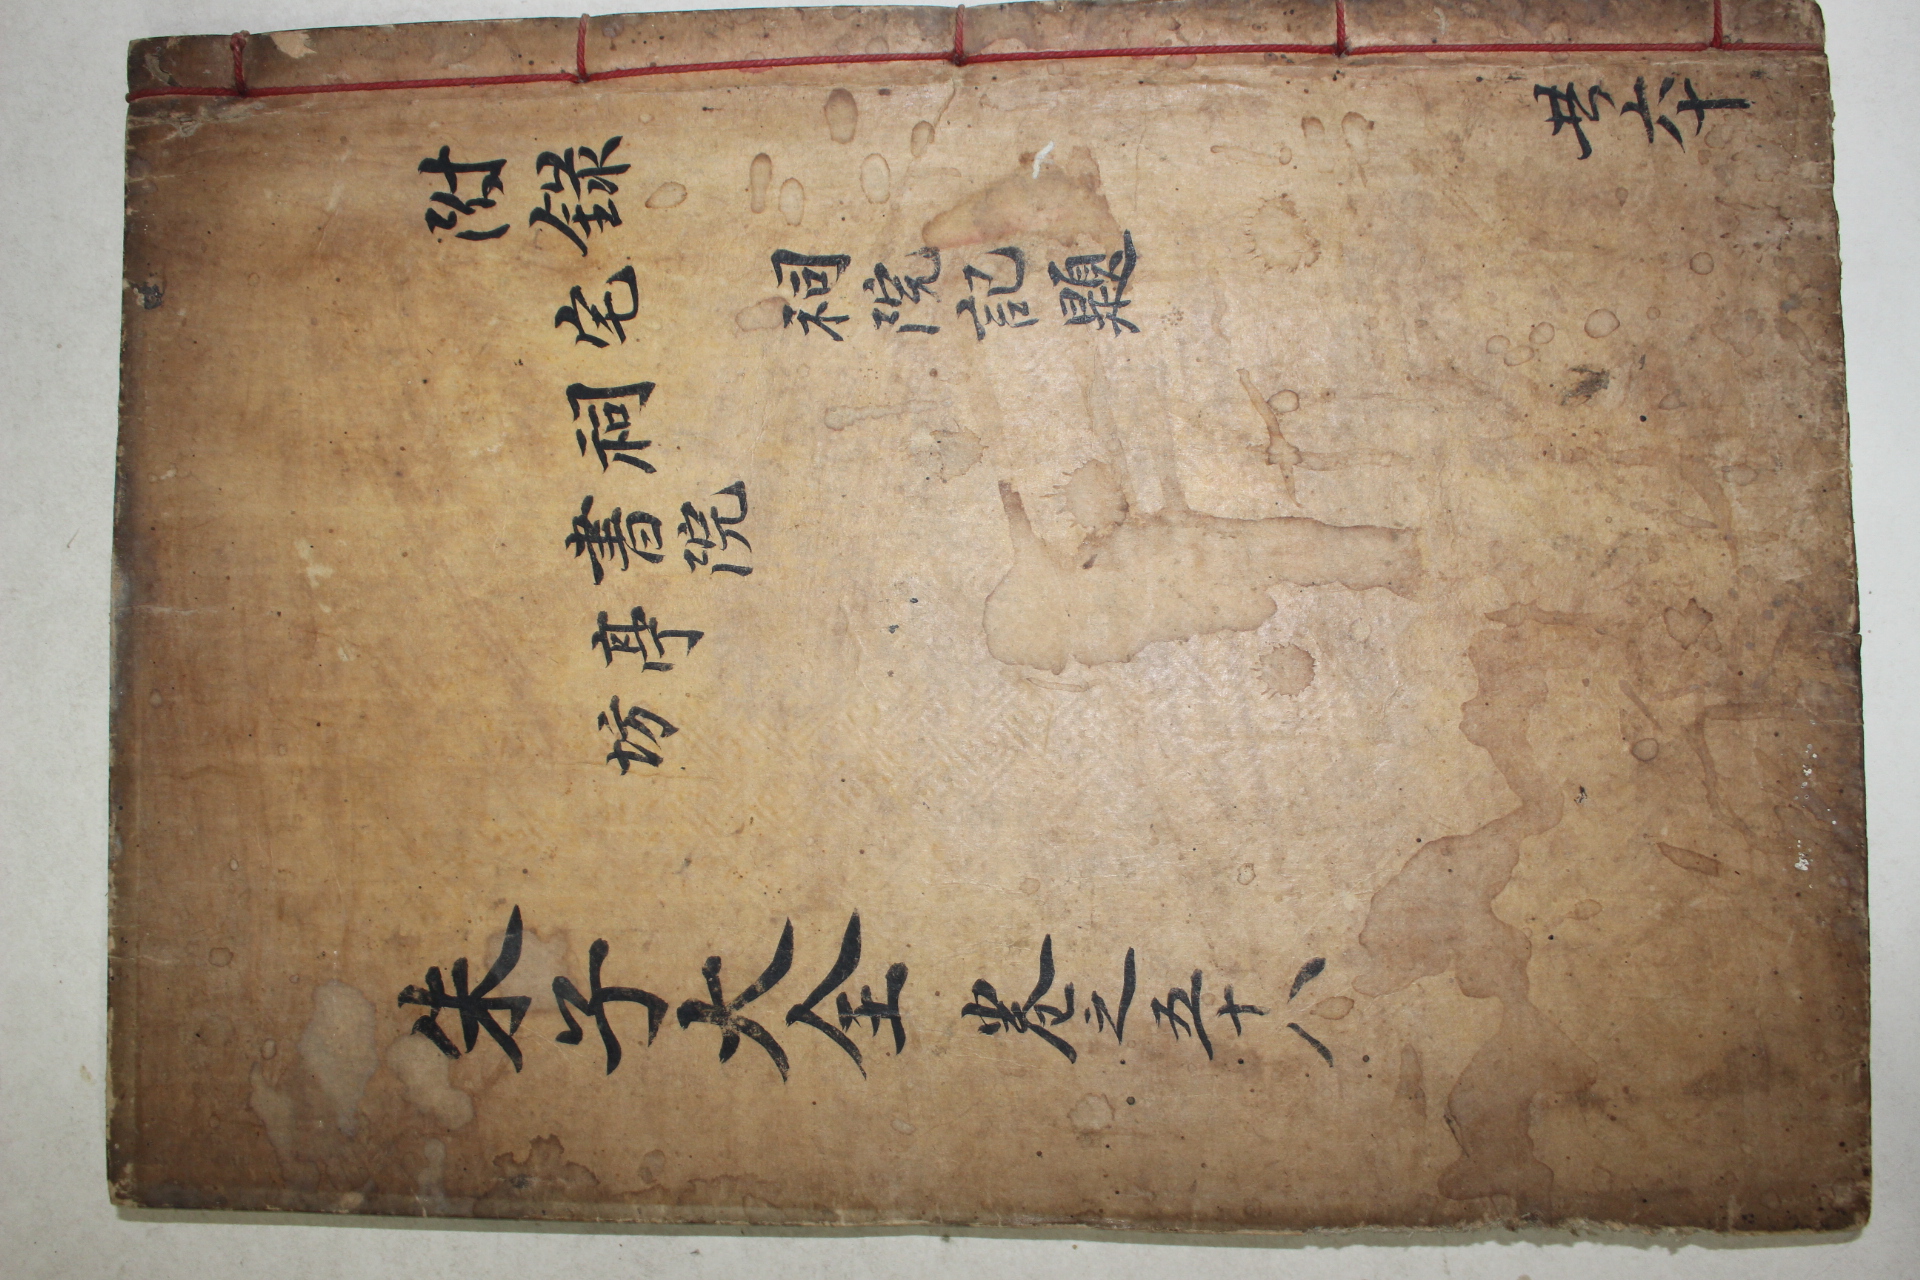 附錄
宅
祠院記題
祠
書院
亭
坊
朱子大全 卷之五十八
共六十